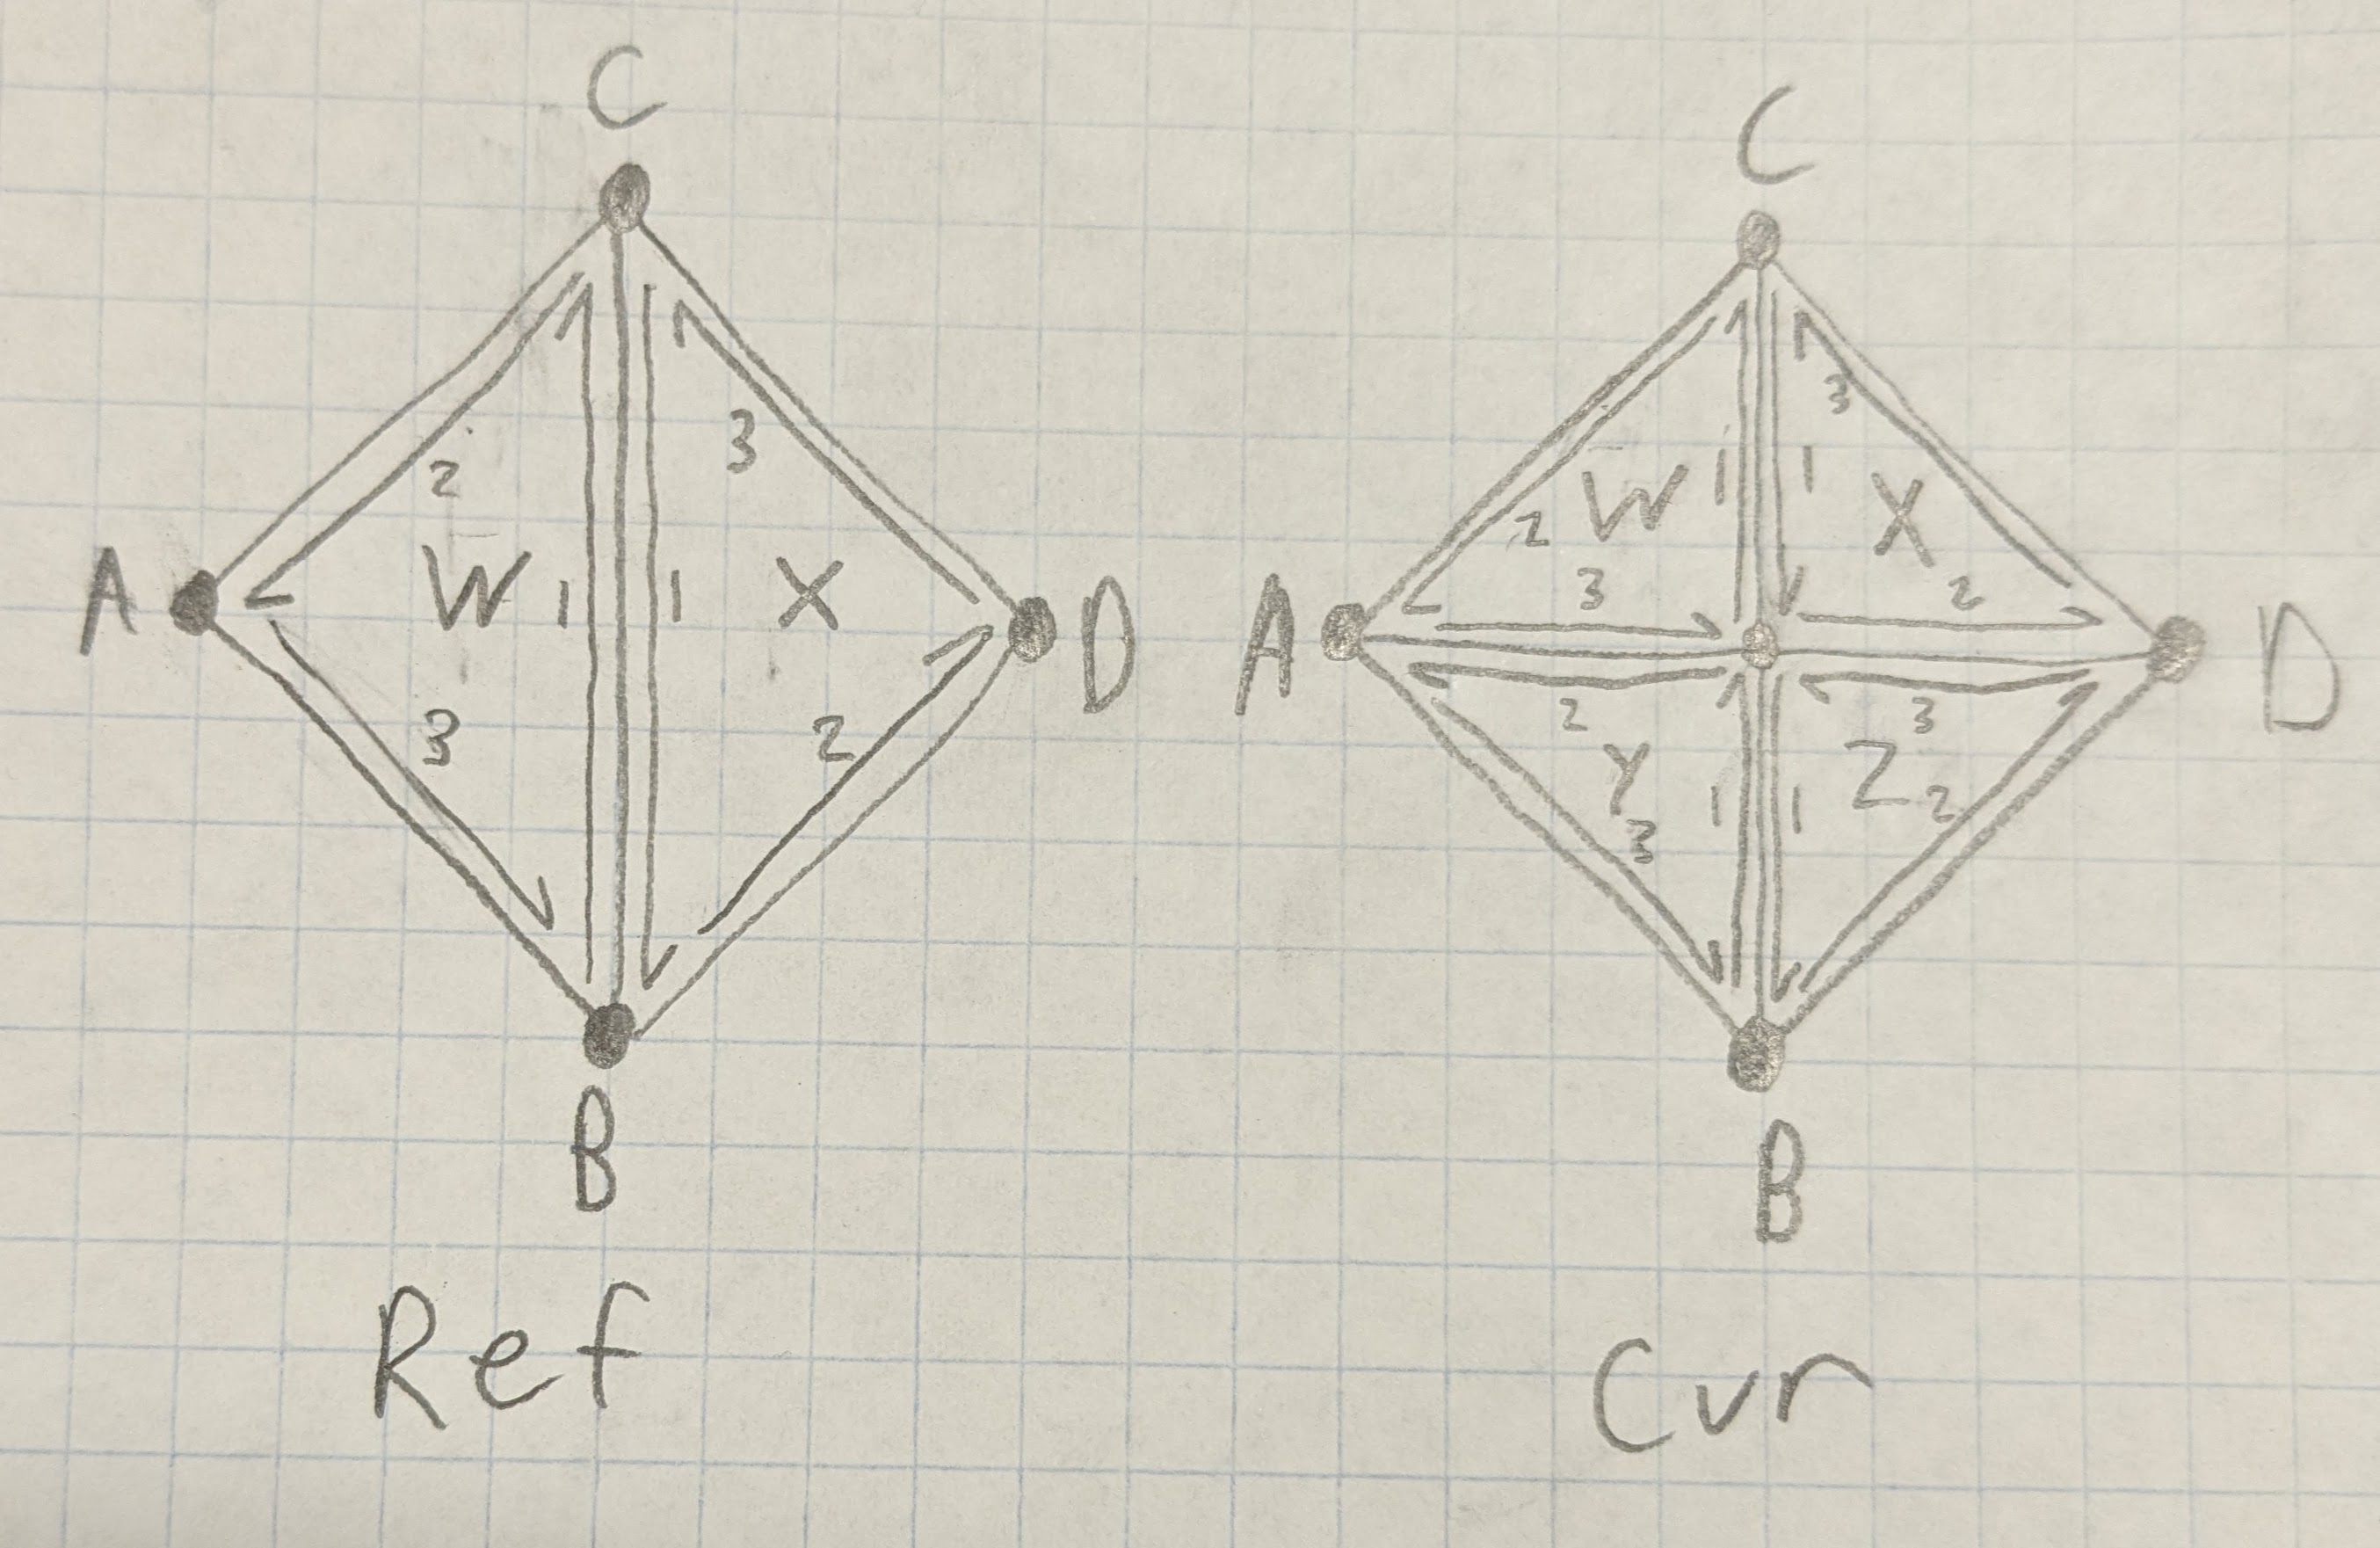 C
2
3
A
W
1
1
X
D
3
2
B
Ref
C
3
W
1
1
X
2
3
2
A
D
2
3
Y
1
1
Z
2
3
B
Cur